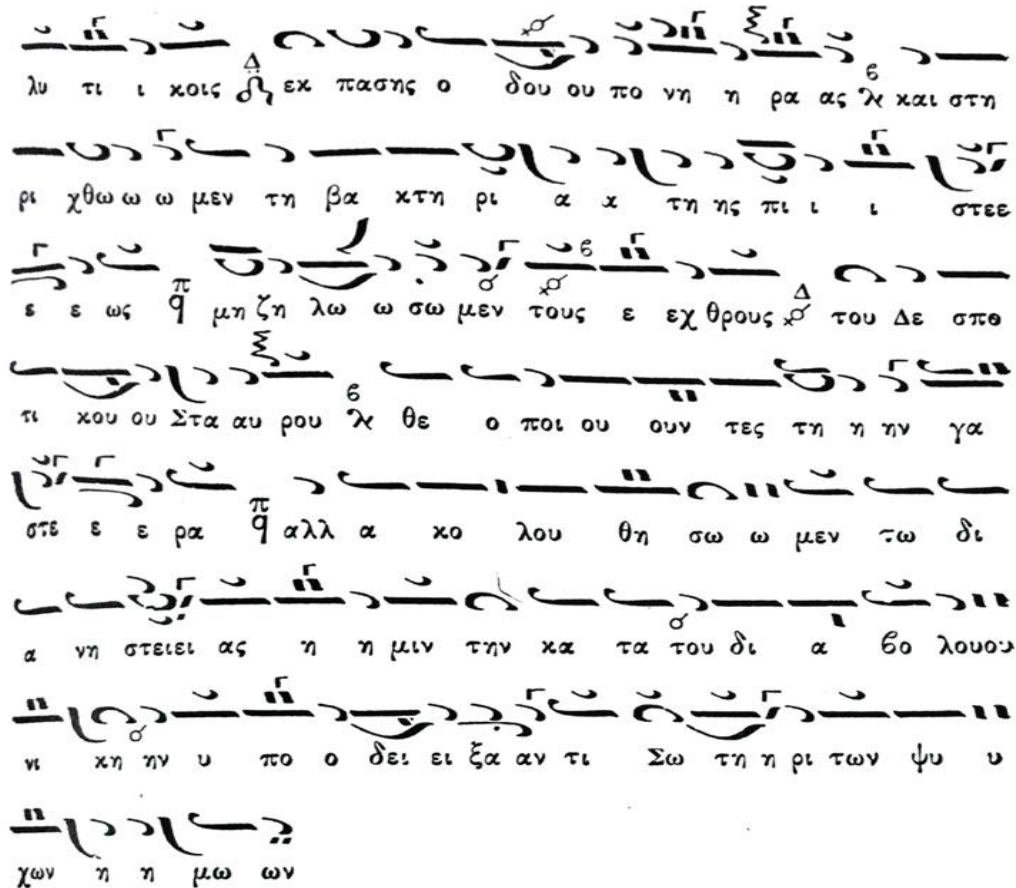 λυ τι ι κοις Δ εκ πασης ο δου ου πο νη η ρα ας ϐ και στη
ρι χθω ω ω μεν τη βα κτη ρι α κ τη ης πι ι ι στεε
ε ε ως π q μη ζη λω ω σω μεν τους ϐ ε εχ θρους Δ του Δε σπο
τι κου ου Στα αυ ρου ϐ θε ο ποι ου ουν τες τη η ην γα
στε ε ε ρα π q αλλ α κο λου θη σω ω μεν τω δι
α νη στειει ας η η μιν την κα τα του δι α ϐο λουου
νι κη ην υ πο ο δει ει ξα αν τι Σω τη η ρι των ψυ υ
χων η η μω ων